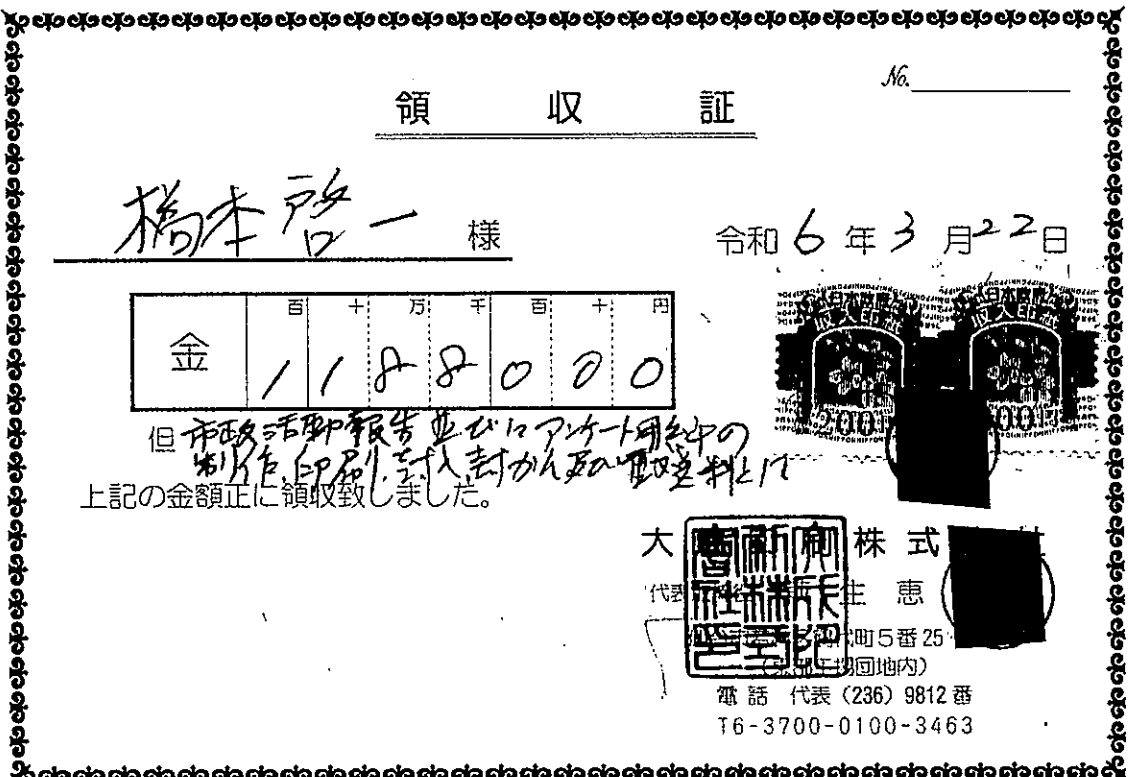 No.
領収証
橋本啓一 様
令和6年3月22日
百 十 万 千 百 十 円
金 1 1 8 8 0 0 0
但 市政活動報告並びにアンケート用紙の
制作、印刷、封入封かん及び
上記の金額正に領収致しました。
日本政府
収入印紙
200円
大 株式
生 恵
町5番25
団地内)
電話 代表 (236) 9812番
T6-3700-0100-3463